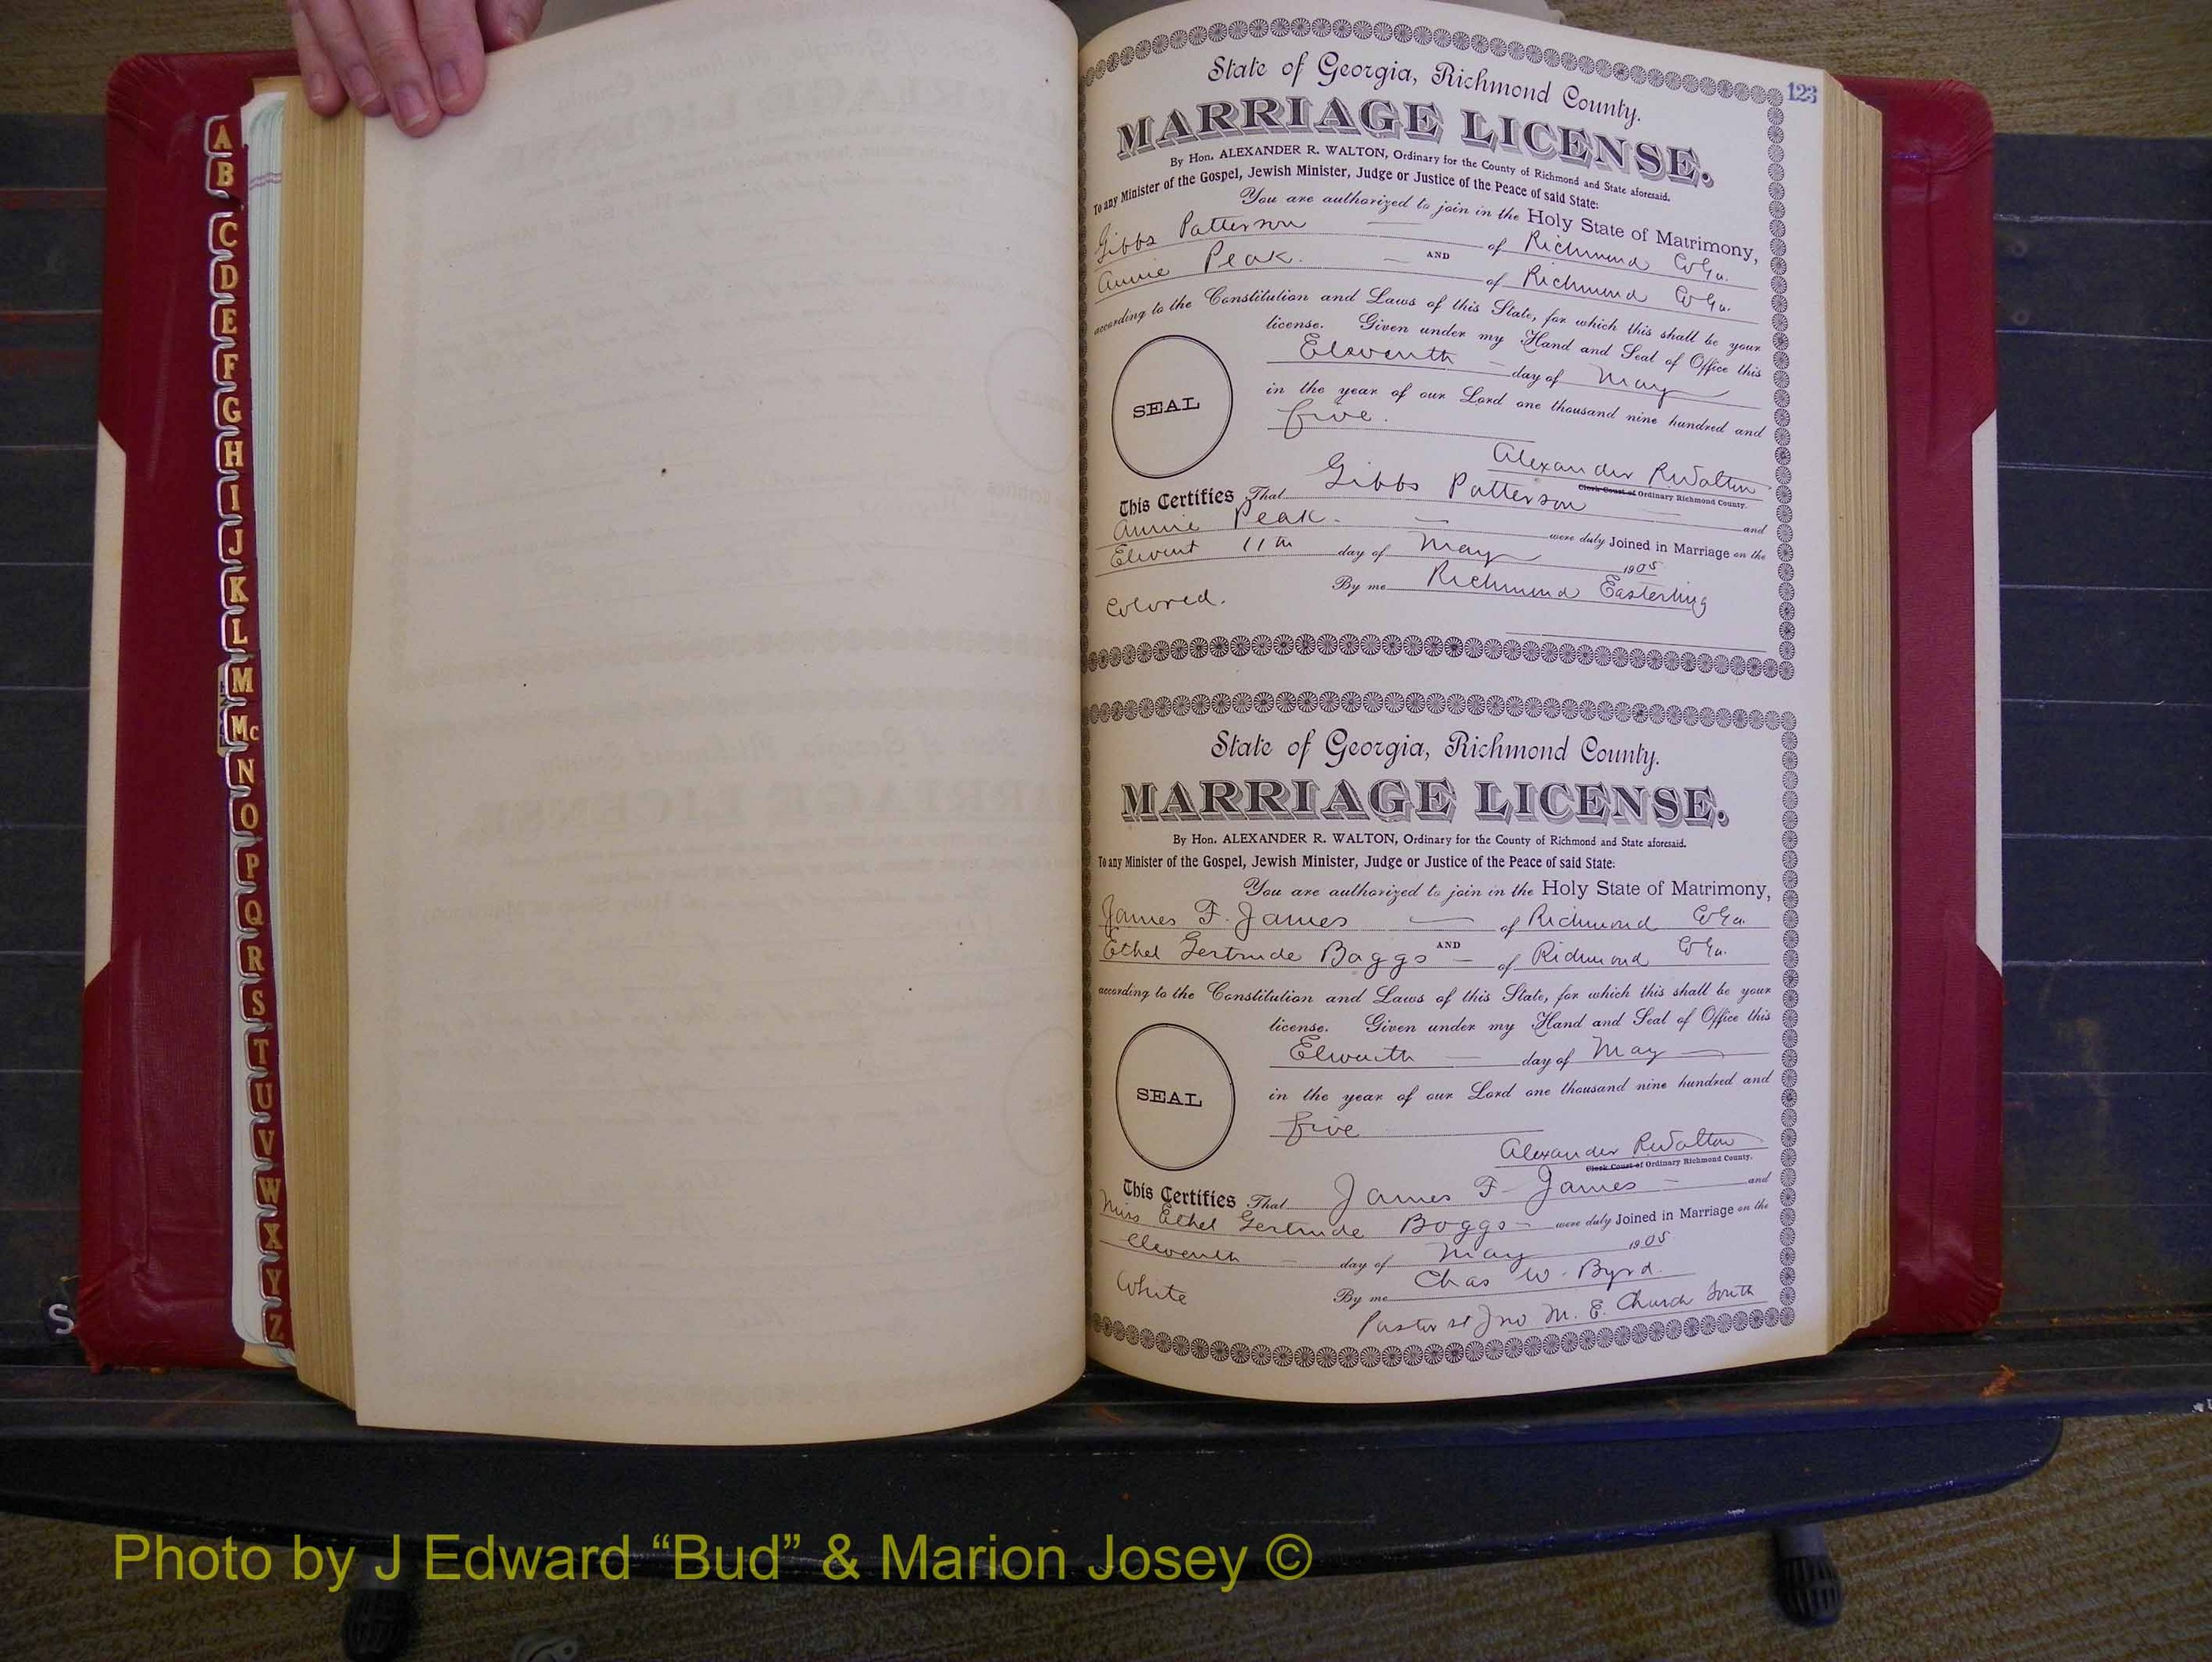 A
B
C
D
E
F
G
H
I
J
K
L
M
Mc
N
O
P
Q
R
S
T
U
V
W
X
Y
Z
S
123
State of Georgia, Richmond County.
MARRIAGE LICENSE.
By Hon. ALEXANDER R. WALTON, Ordinary for the County of Richmond and State aforesaid.
To any Minister of the Gospel, Jewish Minister, Judge or Justice of the Peace of said State:
You are authorized to join in the Holy State of Matrimony,
Gibbs Patterson of Richmond Co Ga.
AND
Annie Peak. of Richmond Co Ga.
according to the Constitution and Laws of this State, for which this shall be your
license. Given under my Hand and Seal of Office this
Eleventh day of May
in the year of our Lord one thousand nine hundred and
five.
SEAL
Alexander R Walton
Clerk Court of Ordinary Richmond County.
This Certifies That Gibbs Patterson and
Annie Peak. were duly Joined in Marriage on the
Elevent 11th day of May 1905
By me Richmond Easterling
Colored.
State of Georgia, Richmond County.
MARRIAGE LICENSE.
By Hon. ALEXANDER R. WALTON, Ordinary for the County of Richmond and State aforesaid.
To any Minister of the Gospel, Jewish Minister, Judge or Justice of the Peace of said State:
You are authorized to join in the Holy State of Matrimony,
James F. James of Richmond Co Ga.
AND
Ethel Gertrude Boggs of Richmond Co Ga.
according to the Constitution and Laws of this State, for which this shall be your
license. Given under my Hand and Seal of Office this
Eleventh day of May
in the year of our Lord one thousand nine hundred and
five
SEAL
Alexander R Walton
Clerk Court of Ordinary Richmond County.
This Certifies That James F James and
Miss Ethel Gertrude Boggs were duly Joined in Marriage on the
Eleventh day of May 1905
By me Chas W. Byrd.
White
Pastor St Jno M. E. Church South
Photo by J Edward “Bud” & Marion Josey ©